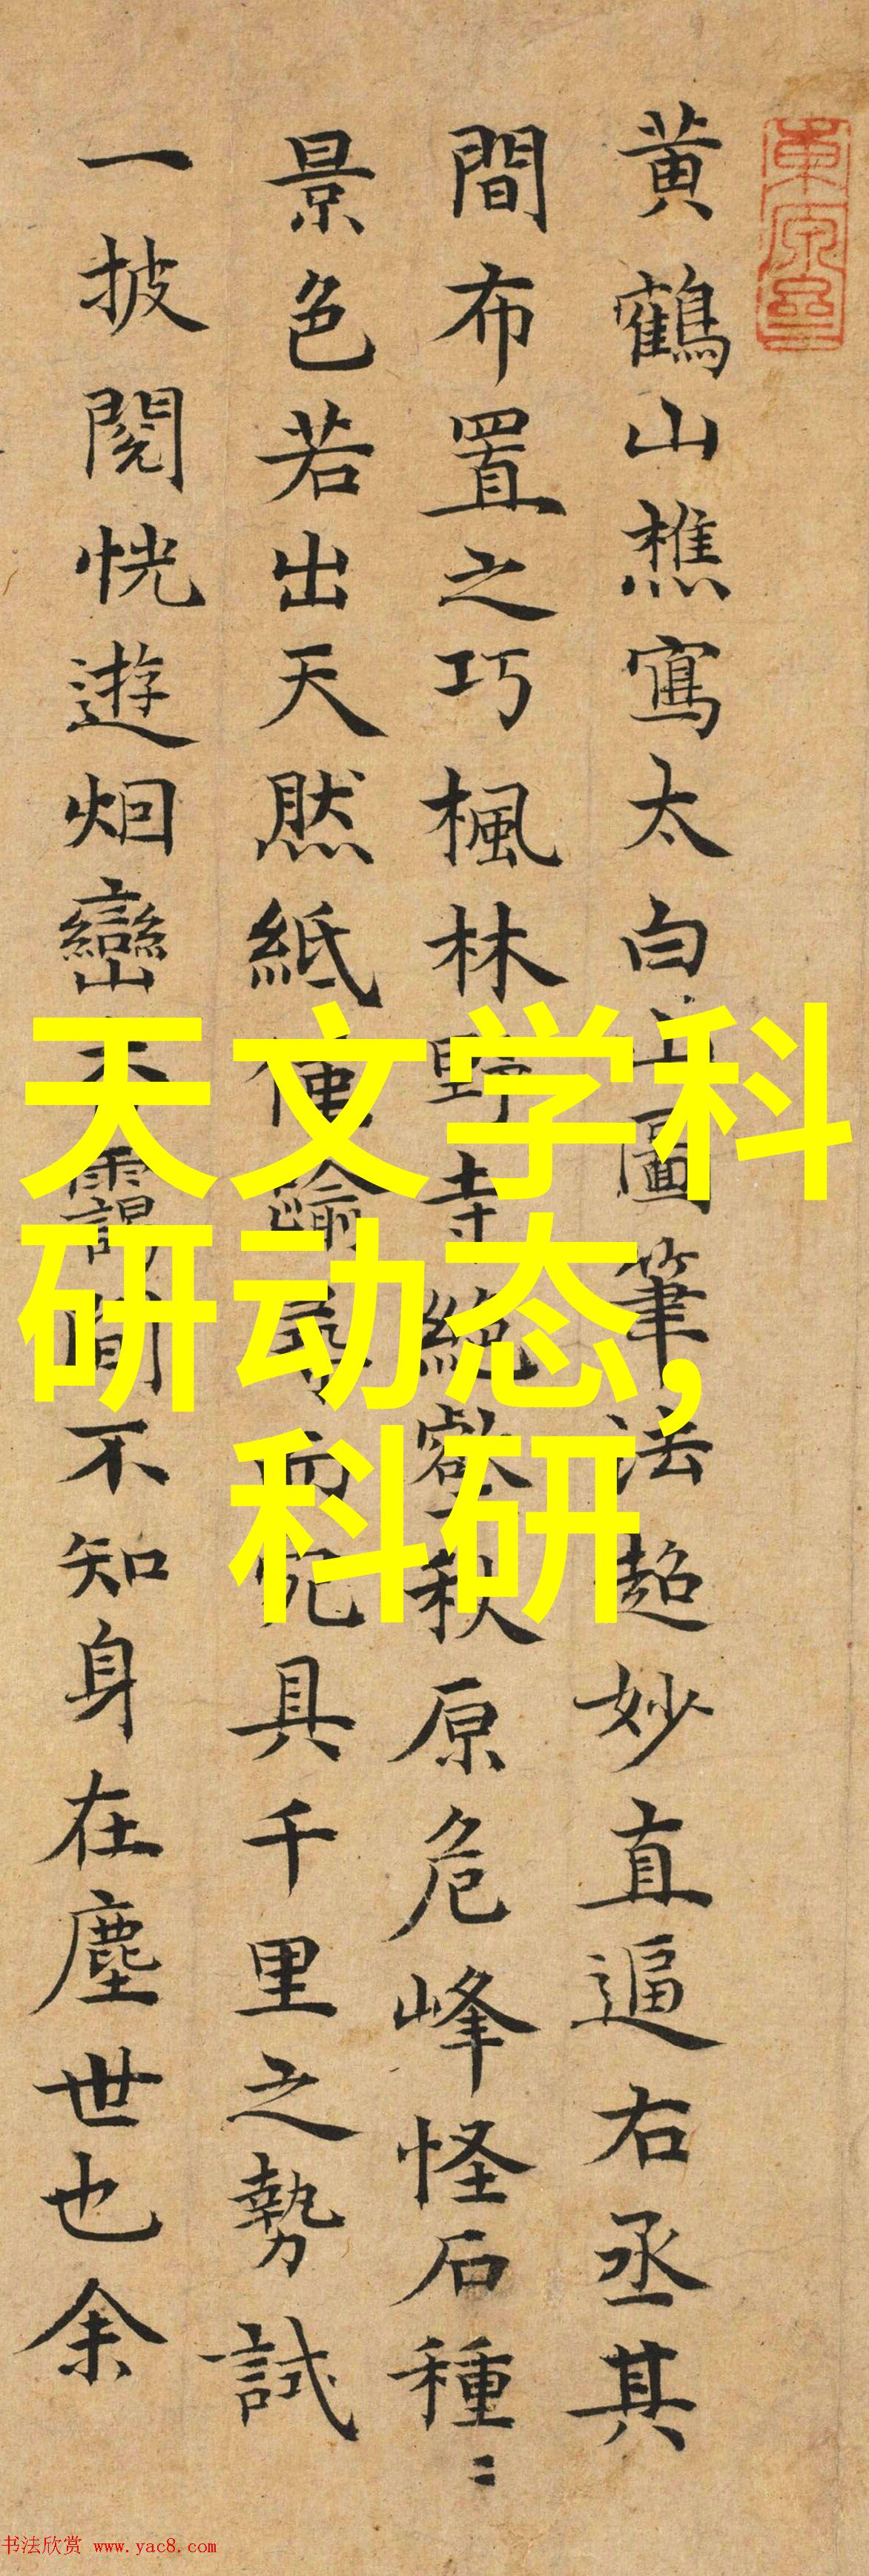 黄鶴山樵寫太白山圖筆法超妙直逼右丞其
間布置之巧楓林野寺絶壑秋原危峰怪石種〻
景色若出天然紙僅踰尋而究具千里之勢試
一披閱恍遊烟巒靄間不知身在塵世也余
天文学科
研动态,
科研
书法欣赏 www.yac8.com